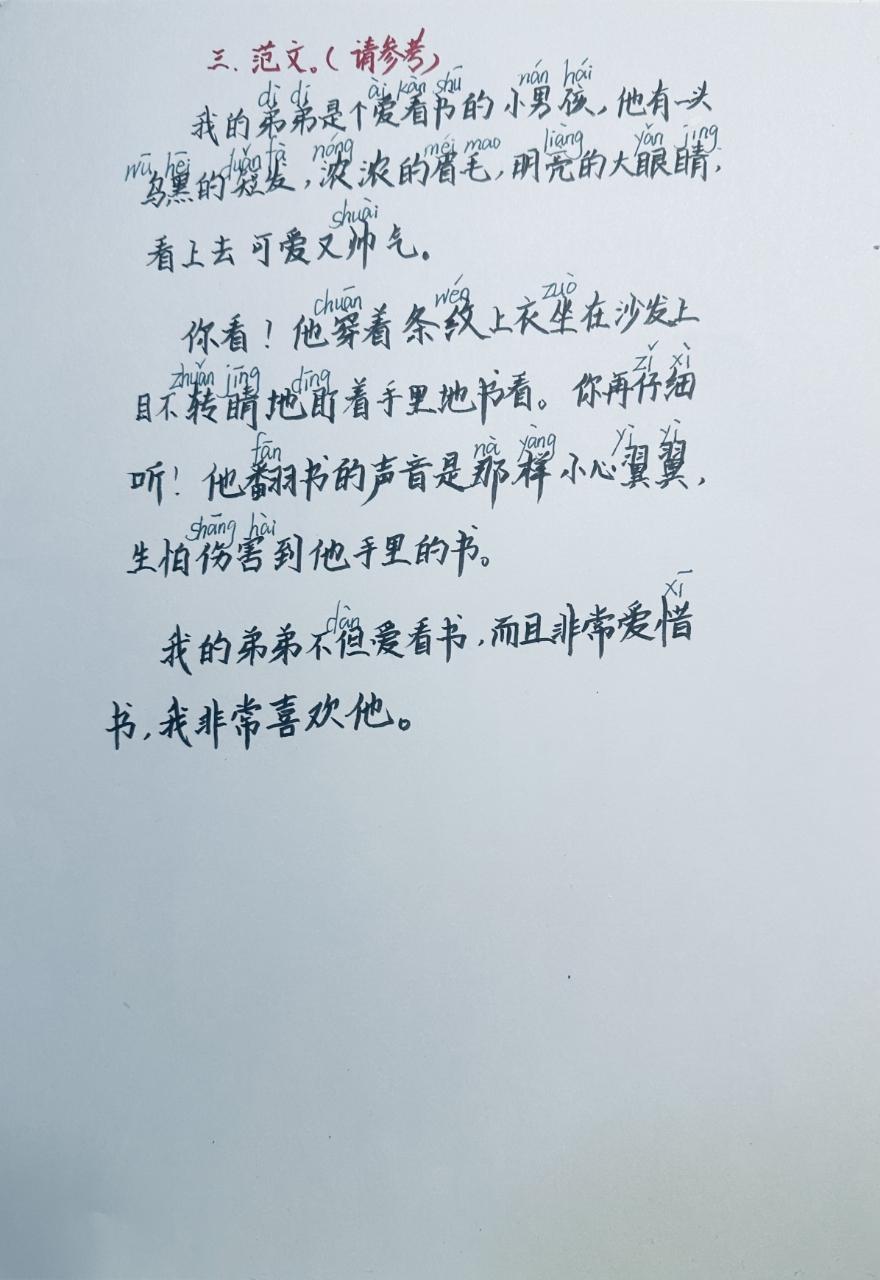 三.范文。(请参考)
dì di ài kàn shū nán hái
我的弟弟是个爱看书的小男孩,他有一头
wū hēi duǎn fà nóng méi mao liàng yǎn jing
乌黑的短发,浓浓的眉毛,明亮的大眼睛,
shuài
看上去可爱又帅气。
chuān wén zuò
你看!他穿着条纹上衣坐在沙发上
zhuǎn jīng dīng zǐ xì
目不转睛地盯着手里地书看。你再仔细
fān nà yàng yì yì
听!他翻书的声音是那样小心翼翼,
shāng hài
生怕伤害到他手里的书。
dàn xī
我的弟弟不但爱看书,而且非常爱惜
书,我非常喜欢他。